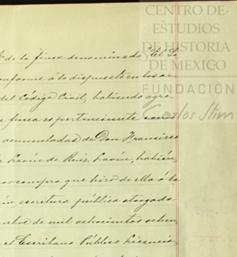 CENTRO DE
ESTUDIOS
DE HISTORIA
DE MEXICO
FUNDACIÓN
Carlos Slim
de la finca denominada
conforme á lo dispuesto en los
del Código Civil, habiendo
finca es perteneciente
acumuladas de Don Francisco
de Ruiz,
compra que hizo de ella á la
escritura pública otorgada
de mil ochocientos ochen
el Escribano Público Licencia